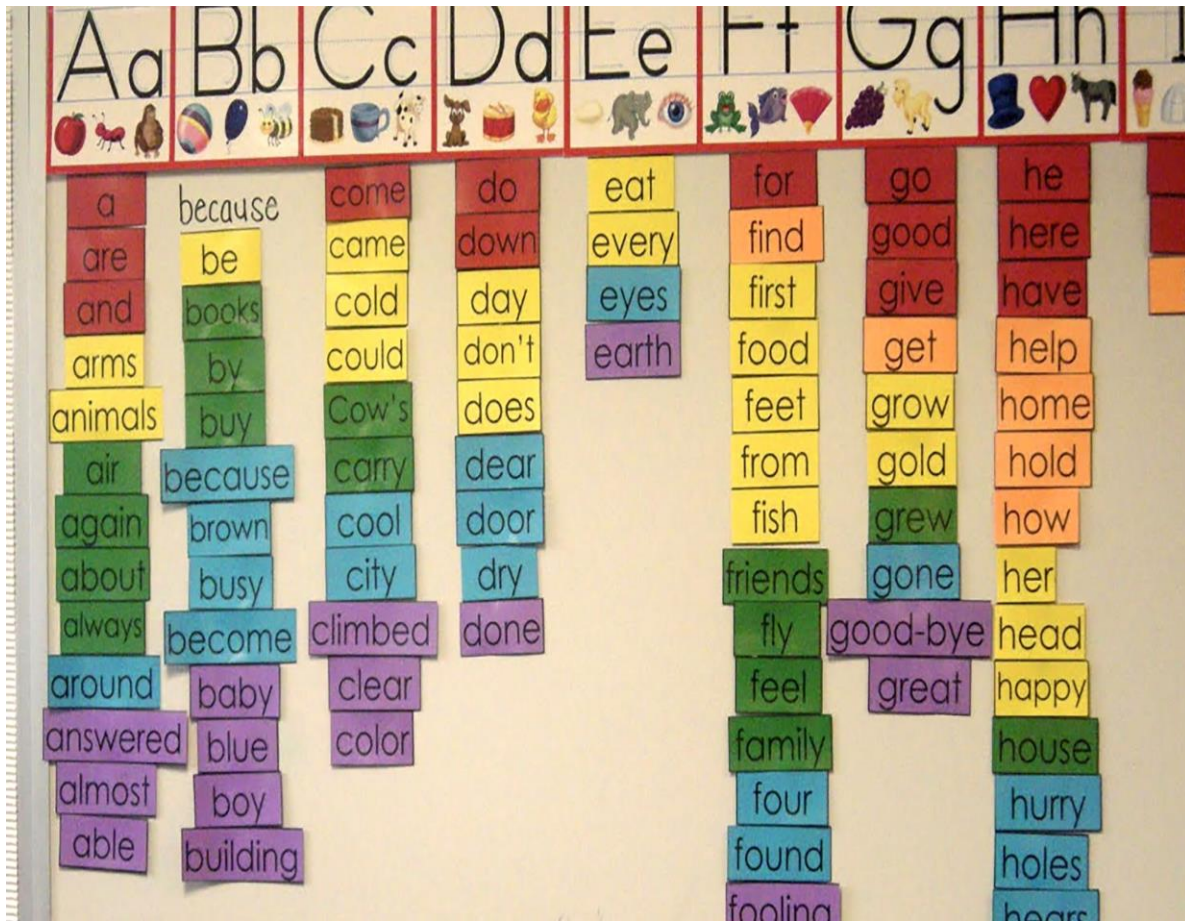 Aa
Bb
Cc
Dd
Ee
Ff
Gg
Hh
a
are
and
arms
animals
air
again
about
always
around
answered
almost
able
because
be
books
by
buy
because
brown
busy
become
baby
blue
boy
building
come
came
cold
could
Cow's
carry
cool
city
climbed
clear
color
do
down
day
don't
does
dear
door
dry
done
eat
every
eyes
earth
for
find
first
food
feet
from
fish
friends
fly
feel
family
four
found
fooling
go
good
give
get
grow
gold
grew
gone
good-bye
great
he
here
have
help
home
hold
how
her
head
happy
house
hurry
holes
hears